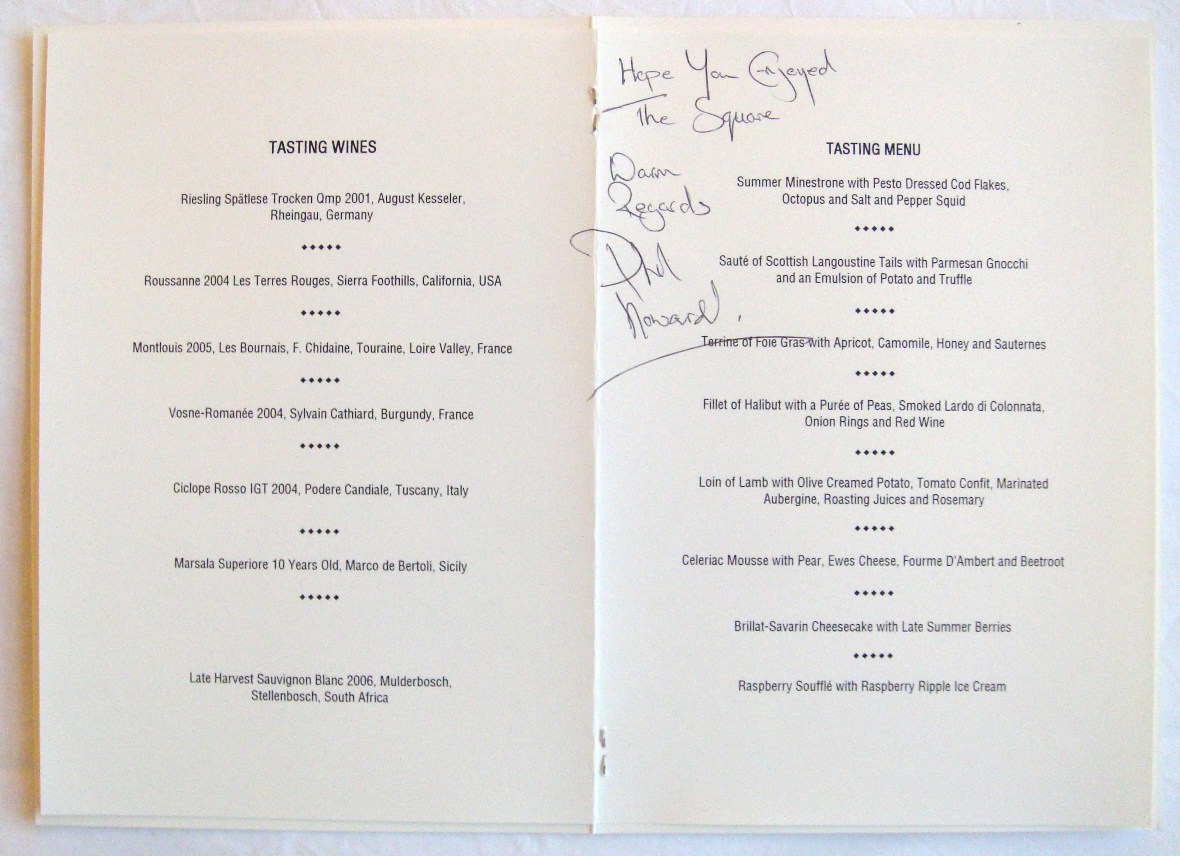 TASTING WINES
Riesling Spätlese Trocken Qmp 2001, August Kesseler,
Rheingau, Germany
◆◆◆◆◆
Roussanne 2004 Les Terres Rouges, Sierra Foothills, California, USA
◆◆◆◆◆
Montlouis 2005, Les Bournais, F. Chidaine, Touraine, Loire Valley, France
◆◆◆◆◆
Vosne-Romanée 2004, Sylvain Cathiard, Burgundy, France
◆◆◆◆◆
Ciclope Rosso IGT 2004, Podere Candiale, Tuscany, Italy
◆◆◆◆◆
Marsala Superiore 10 Years Old, Marco de Bertoli, Sicily
◆◆◆◆◆
Late Harvest Sauvignon Blanc 2006, Mulderbosch,
Stellenbosch, South Africa
Hope You Enjoyed
The Square
Warm
Regards
Phil
Howard.
TASTING MENU
Summer Minestrone with Pesto Dressed Cod Flakes,
Octopus and Salt and Pepper Squid
◆◆◆◆◆
Sauté of Scottish Langoustine Tails with Parmesan Gnocchi
and an Emulsion of Potato and Truffle
◆◆◆◆◆
Terrine of Foie Gras with Apricot, Camomile, Honey and Sauternes
◆◆◆◆◆
Fillet of Halibut with a Purée of Peas, Smoked Lardo di Colonnata,
Onion Rings and Red Wine
◆◆◆◆◆
Loin of Lamb with Olive Creamed Potato, Tomato Confit, Marinated
Aubergine, Roasting Juices and Rosemary
◆◆◆◆◆
Celeriac Mousse with Pear, Ewes Cheese, Fourme D'Ambert and Beetroot
◆◆◆◆◆
Brillat-Savarin Cheesecake with Late Summer Berries
◆◆◆◆◆
Raspberry Soufflé with Raspberry Ripple Ice Cream